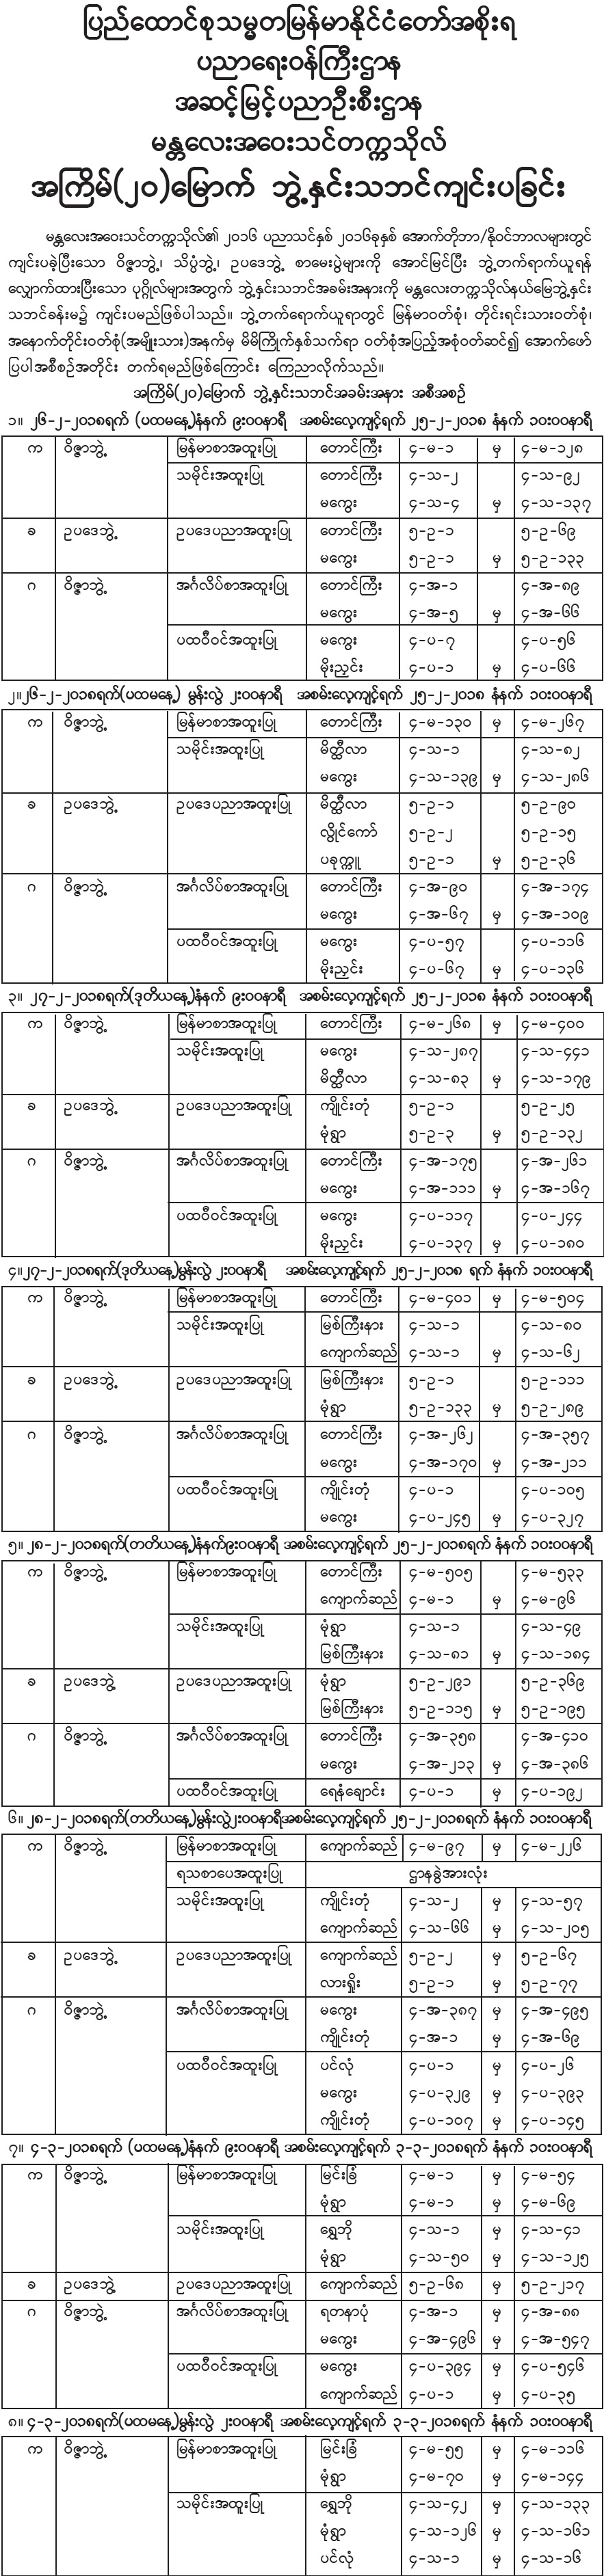 ပြည်ထောင်စုသမ္မတမြန်မာနိုင်ငံတော်အစိုးရ
ပညာရေးဝန်ကြီးဌာန
အဆင့်မြင့်ပညာဦးစီးဌာန
မန္တလေးအဝေးသင်တက္ကသိုလ်
အကြိမ်(၂၀)မြောက် ဘွဲ့နှင်းသဘင်ကျင်းပခြင်း
မန္တလေးအဝေးသင်တက္ကသိုလ်၏ ၂၀၁၆ ပညာသင်နှစ် ၂၀၁၆ခုနှစ် အောက်တိုဘာ/နိုဝင်ဘာလများတွင်
ကျင်းပခဲ့ပြီးသော ဝိဇ္ဇာဘွဲ့၊ သိပ္ပံဘွဲ့၊ ဥပဒေဘွဲ့ စာမေးပွဲများကို အောင်မြင်ပြီး ဘွဲ့တက်ရောက်ယူရန်
လျှောက်ထားပြီးသော ပုဂ္ဂိုလ်များအတွက် ဘွဲ့နှင်းသဘင်အခမ်းအနားကို မန္တလေးတက္ကသိုလ်နယ်မြေဘွဲ့နှင်း
သဘင်ခန်းမ၌ ကျင်းပမည်ဖြစ်ပါသည်။ ဘွဲ့တက်ရောက်ယူရာတွင် မြန်မာဝတ်စုံ၊ တိုင်းရင်းသားဝတ်စုံ၊
အနောက်တိုင်းဝတ်စုံ(အမျိုးသား)အနက်မှ မိမိကြိုက်နှစ်သက်ရာ ဝတ်စုံအပြည့်အစုံဝတ်ဆင်၍ အောက်ဖော်
ပြပါအစီစဉ်အတိုင်း တက်ရမည်ဖြစ်ကြောင်း ကြေညာလိုက်သည်။
အကြိမ်(၂၀)မြောက် ဘွဲ့နှင်းသဘင်အခမ်းအနား အစီအစဉ်
၁။ ၂၆-၂-၂၀၁၈ရက် (ပထမနေ့)နံနက် ၉းဝ၀နာရီ အစမ်းလေ့ကျင့်ရက် ၂၅-၂-၂၀၁၈ နံနက် ၁၀းဝ၀နာရီ
က ဝိဇ္ဇာဘွဲ့ မြန်မာစာအထူးပြု တောင်ကြီး ၄-မ-၁ မှ ၄-မ-၁၂၈
သမိုင်းအထူးပြု တောင်ကြီး ၄-သ-၂ ၄-သ-၉၂
မကွေး ၄-သ-၄ မှ ၄-သ-၁၃၇
ခ ဥပဒေဘွဲ့ ဥပဒေပညာအထူးပြု တောင်ကြီး ၅-ဥ-၁ ၅-ဥ-၆၉
မကွေး ၅-ဥ-၁ မှ ၅-ဥ-၁၃၃
ဂ ဝိဇ္ဇာဘွဲ့ အင်္ဂလိပ်စာအထူးပြု တောင်ကြီး ၄-အ-၁ ၄-အ-၈၉
မကွေး ၄-အ-၅ မှ ၄-အ-၆၆
ပထဝီဝင်အထူးပြု မကွေး ၄-ပ-၇ ၄-ပ-၅၆
မိုးညှင်း ၄-ပ-၁ မှ ၄-ပ-၆၆
၂။၂၆-၂-၂၀၁၈ရက်(ပထမနေ့) မွန်းလွဲ ၂းဝ၀နာရီ အစမ်းလေ့ကျင့်ရက် ၂၅-၂-၂၀၁၈ နံနက် ၁၀းဝ၀နာရီ
က ဝိဇ္ဇာဘွဲ့ မြန်မာစာအထူးပြု တောင်ကြီး ၄-မ-၁၃၀ မှ ၄-မ-၂၆၇
သမိုင်းအထူးပြု မိတ္ထီလာ ၄-သ-၁ ၄-သ-၈၂
မကွေး ၄-သ-၁၃၉ မှ ၄-သ-၂၈၆
ခ ဥပဒေဘွဲ့ ဥပဒေပညာအထူးပြု မိတ္ထီလာ ၅-ဥ-၁ ၅-ဥ-၉၀
လွိုင်ကော် ၅-ဥ-၂ ၅-ဥ-၁၅
ပခုက္ကူ ၅-ဥ-၁ မှ ၅-ဥ-၃၆
ဂ ဝိဇ္ဇာဘွဲ့ အင်္ဂလိပ်စာအထူးပြု တောင်ကြီး ၄-အ-၉၀ ၄-အ-၁၇၄
မကွေး ၄-အ-၆၇ မှ ၄-အ-၁၀၉
ပထဝီဝင်အထူးပြု မကွေး ၄-ပ-၅၇ ၄-ပ-၁၁၆
မိုးညှင်း ၄-ပ-၆၇ မှ ၄-ပ-၁၃၆
၃။ ၂၇-၂-၂၀၁၈ရက်(ဒုတိယနေ့)နံနက် ၉းဝ၀နာရီ အစမ်းလေ့ကျင့်ရက် ၂၅-၂-၂၀၁၈ နံနက် ၁၀းဝ၀နာရီ
က ဝိဇ္ဇာဘွဲ့ မြန်မာစာအထူးပြု တောင်ကြီး ၄-မ-၂၆၈ မှ ၄-မ-၄၀၀
သမိုင်းအထူးပြု မကွေး ၄-သ-၂၈၇ ၄-သ-၄၄၁
မိတ္ထီလာ ၄-သ-၈၃ မှ ၄-သ-၁၇၉
ခ ဥပဒေဘွဲ့ ဥပဒေပညာအထူးပြု ကျိုင်းတုံ ၅-ဥ-၁ ၅-ဥ-၂၅
မုံရွာ ၅-ဥ-၃ မှ ၅-ဥ-၁၃၂
ဂ ဝိဇ္ဇာဘွဲ့ အင်္ဂလိပ်စာအထူးပြု တောင်ကြီး ၄-အ-၁၇၅ ၄-အ-၂၆၁
မကွေး ၄-အ-၁၁၁ မှ ၄-အ-၁၆၇
ပထဝီဝင်အထူးပြု မကွေး ၄-ပ-၁၁၇ ၄-ပ-၂၄၄
မိုးညှင်း ၄-ပ-၁၃၇ မှ ၄-ပ-၁၈၀
၄။၂၇-၂-၂၀၁၈ရက်(ဒုတိယနေ့)မွန်းလွဲ ၂းဝ၀နာရီ အစမ်းလေ့ကျင့်ရက် ၂၅-၂-၂၀၁၈ ရက် နံနက် ၁၀းဝ၀နာရီ
က ဝိဇ္ဇာဘွဲ့ မြန်မာစာအထူးပြု တောင်ကြီး ၄-မ-၄၀၁ မှ ၄-မ-၅၀၄
သမိုင်းအထူးပြု မြစ်ကြီးနား ၄-သ-၁ ၄-သ-၈၀
ကျောက်ဆည် ၄-သ-၁ မှ ၄-သ-၆၂
ခ ဥပဒေဘွဲ့ ဥပဒေပညာအထူးပြု မြစ်ကြီးနား ၅-ဥ-၁ ၅-ဥ-၁၁၁
မုံရွာ ၅-ဥ-၁၃၃ မှ ၅-ဥ-၂၈၉
ဂ ဝိဇ္ဇာဘွဲ့ အင်္ဂလိပ်စာအထူးပြု တောင်ကြီး ၄-အ-၂၆၂ ၄-အ-၃၅၇
မကွေး ၄-အ-၁၇၀ မှ ၄-အ-၂၁၁
ပထဝီဝင်အထူးပြု ကျိုင်းတုံ ၄-ပ-၁ ၄-ပ-၁၀၅
မကွေး ၄-ပ-၂၄၅ မှ ၄-ပ-၃၂၇
၅။ ၂၈-၂-၂၀၁၈ရက်(တတိယနေ့)နံနက်၉းဝ၀နာရီ အစမ်းလေ့ကျင့်ရက် ၂၅-၂-၂၀၁၈ရက် နံနက် ၁၀းဝ၀နာရီ
က ဝိဇ္ဇာဘွဲ့ မြန်မာစာအထူးပြု တောင်ကြီး ၄-မ-၅၀၅ ၄-မ-၅၃၃
ကျောက်ဆည် ၄-မ-၁ မှ ၄-မ-၉၆
သမိုင်းအထူးပြု မုံရွာ ၄-သ-၁ ၄-သ-၄၉
မြစ်ကြီးနား ၄-သ-၈၁ မှ ၄-သ-၁၈၄
ခ ဥပဒေဘွဲ့ ဥပဒေပညာအထူးပြု မုံရွာ ၅-ဥ-၂၉၁ ၅-ဥ-၃၆၉
မြစ်ကြီးနား ၅-ဥ-၁၁၅ မှ ၅-ဥ-၁၉၅
ဂ ဝိဇ္ဇာဘွဲ့ အင်္ဂလိပ်စာအထူးပြု တောင်ကြီး ၄-အ-၃၅၈ ၄-အ-၄၁၀
မကွေး ၄-အ-၂၁၃ မှ ၄-အ-၃၈၆
ပထဝီဝင်အထူးပြု ရေနံချောင်း ၄-ပ-၁ မှ ၄-ပ-၁၉၂
၆။ ၂၈-၂-၂၀၁၈ရက်(တတိယနေ့)မွန်းလွဲ၂းဝ၀နာရီအစမ်းလေ့ကျင့်ရက် ၂၅-၂-၂၀၁၈ရက် နံနက် ၁၀းဝ၀နာရီ
က ဝိဇ္ဇာဘွဲ့ မြန်မာစာအထူးပြု ကျောက်ဆည် ၄-မ-၉၇ မှ ၄-မ-၂၂၆
ရသစာပေအထူးပြု ဌာနခွဲအားလုံး
သမိုင်းအထူးပြု ကျိုင်းတုံ ၄-သ-၂ မှ ၄-သ-၅၇
ကျောက်ဆည် ၄-သ-၆၆ မှ ၄-သ-၂၀၅
ခ ဥပဒေဘွဲ့ ဥပဒေပညာအထူးပြု ကျောက်ဆည် ၅-ဥ-၂ မှ ၅-ဥ-၆၇
လားရှိုး ၅-ဥ-၁ မှ ၅-ဥ-၇၇
ဂ ဝိဇ္ဇာဘွဲ့ အင်္ဂလိပ်စာအထူးပြု မကွေး ၄-အ-၃၈၇ မှ ၄-အ-၄၉၅
ကျိုင်းတုံ ၄-အ-၁ မှ ၄-အ-၆၉
ပထဝီဝင်အထူးပြု ပင်လုံ ၄-ပ-၁ မှ ၄-ပ-၂၆
မကွေး ၄-ပ-၃၂၉ မှ ၄-ပ-၃၉၃
ကျိုင်းတုံ ၄-ပ-၁၀၇ မှ ၄-ပ-၁၄၅
၇။ ၄-၃-၂၀၁၈ရက် (ပထမနေ့)နံနက် ၉းဝ၀နာရီ အစမ်းလေ့ကျင့်ရက် ၃-၃-၂၀၁၈ရက် နံနက် ၁၀းဝ၀နာရီ
က ဝိဇ္ဇာဘွဲ့ မြန်မာစာအထူးပြု မြင်းခြံ ၄-မ-၁ မှ ၄-မ-၅၄
မုံရွာ ၄-မ-၁ မှ ၄-မ-၆၉
သမိုင်းအထူးပြု ရွှေဘို ၄-သ-၁ မှ ၄-သ-၄၁
မုံရွာ ၄-သ-၅၀ မှ ၄-သ-၁၂၅
ခ ဥပဒေဘွဲ့ ဥပဒေပညာအထူးပြု ကျောက်ဆည် ၅-ဥ-၆၈ မှ ၅-ဥ-၂၁၇
ဂ ဝိဇ္ဇာဘွဲ့ အင်္ဂလိပ်စာအထူးပြု ရတနာပုံ ၄-အ-၁ မှ ၄-အ-၈၈
မကွေး ၄-အ-၄၉၆ မှ ၄-အ-၅၄၇
ပထဝီဝင်အထူးပြု မကွေး ၄-ပ-၃၉၄ မှ ၄-ပ-၅၄၆
ကျောက်ဆည် ၄-ပ-၁ မှ ၄-ပ-၃၅
၈။ ၄-၃-၂၀၁၈ရက်(ပထမနေ့)မွန်းလွဲ ၂းဝ၀နာရီ အစမ်းလေ့ကျင့်ရက် ၃-၃-၂၀၁၈ရက် နံနက် ၁၀းဝ၀နာရီ
က ဝိဇ္ဇာဘွဲ့ မြန်မာစာအထူးပြု မြင်းခြံ ၄-မ-၅၅ မှ ၄-မ-၁၁၆
မုံရွာ ၄-မ-၇၀ မှ ၄-မ-၁၄၄
သမိုင်းအထူးပြု ရွှေဘို ၄-သ-၄၂ မှ ၄-သ-၁၃၃
မုံရွာ ၄-သ-၁၂၆ မှ ၄-သ-၁၆၁
ပင်လုံ ၄-သ-၁ မှ ၄-သ-၁၆